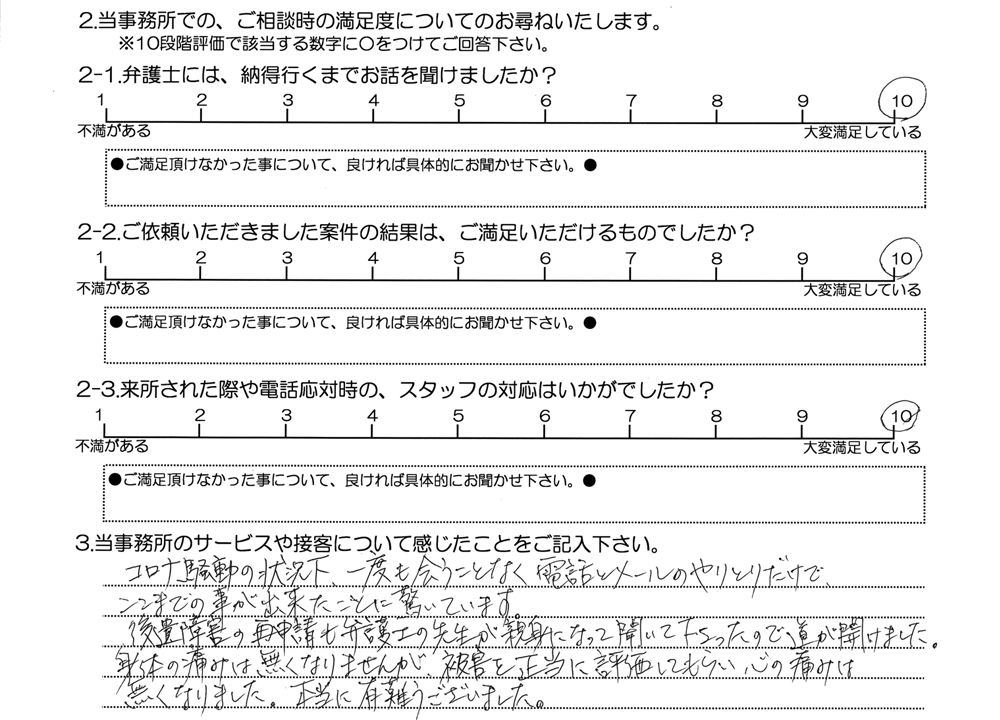 2.当事務所での、ご相談時の満足度についてのお尋ねいたします。
※10段階評価で該当する数字に〇をつけてご回答下さい。
2-1.弁護士には、納得行くまでお話を聞けましたか？
1 2 3 4 5 6 7 8 9 10
不満がある 大変満足している
●ご満足頂けなかった事について、良ければ具体的にお聞かせ下さい。●
2-2.ご依頼いただきました案件の結果は、ご満足いただけるものでしたか？
1 2 3 4 5 6 7 8 9 10
不満がある 大変満足している
●ご満足頂けなかった事について、良ければ具体的にお聞かせ下さい。●
2-3.来所された際や電話応対時の、スタッフの対応はいかがでしたか？
1 2 3 4 5 6 7 8 9 10
不満がある 大変満足している
●ご満足頂けなかった事について、良ければ具体的にお聞かせ下さい。●
3.当事務所のサービスや接客について感じたことをご記入下さい。
コロナ騒動の状況下、一度も会うことなく電話とメールのやりとりだけで、
ここまでの事が出来たことに驚いています。
後遺障害の再申請も弁護士の先生が親身になって聞いて下さったので道が開けました。
身体の痛みは無くなりませんが、被害を正当に評価してもらい心の痛みは
無くなりました。本当に有難うございました。